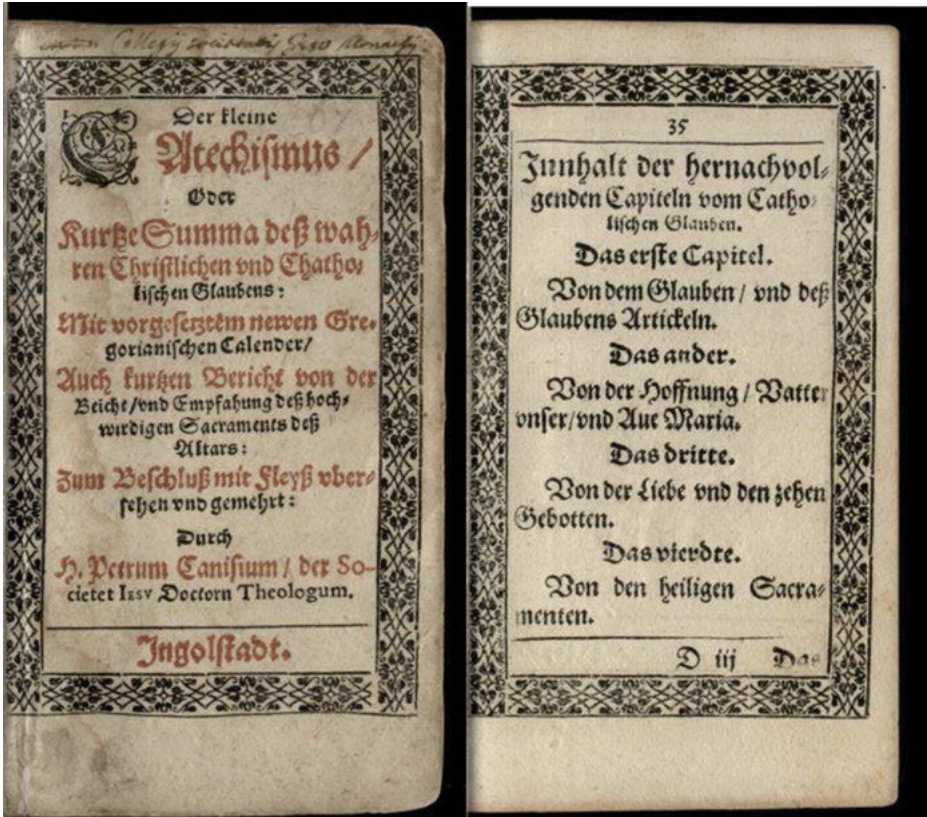 Collegij Societatis Iesu Monachij
Der kleine
CAtechismus /
Oder
Kurtze Summa deß wah-
ren Christlichen vnd Chatho-
lischen Glaubens:
Mit vorgesetztem newen Gre-
gorianischen Calender/
Auch kurtzen Bericht von der
Beicht/vnd Empfahung deß hoch-
wirdigen Sacraments deß
Altars:
Zum Beschluß mit Fleyß vber-
sehen vnd gemehrt:
Durch
H. Petrum Canisium / der So-
cietet IESV Doctorn Theologum.
Ingolstadt.
35
Innhalt der hernachvol-
genden Capiteln vom Catho-
lischen Glauben.
Das erste Capitel.
Von dem Glauben / vnd deß
Glaubens Artickeln.
Das ander.
Von der Hoffnung / Vatter
vnser/vnd Aue Maria.
Das dritte.
Von der Liebe vnd den zehen
Gebotten.
Das vierdte.
Von den heiligen Sacra-
menten.
D iij Das